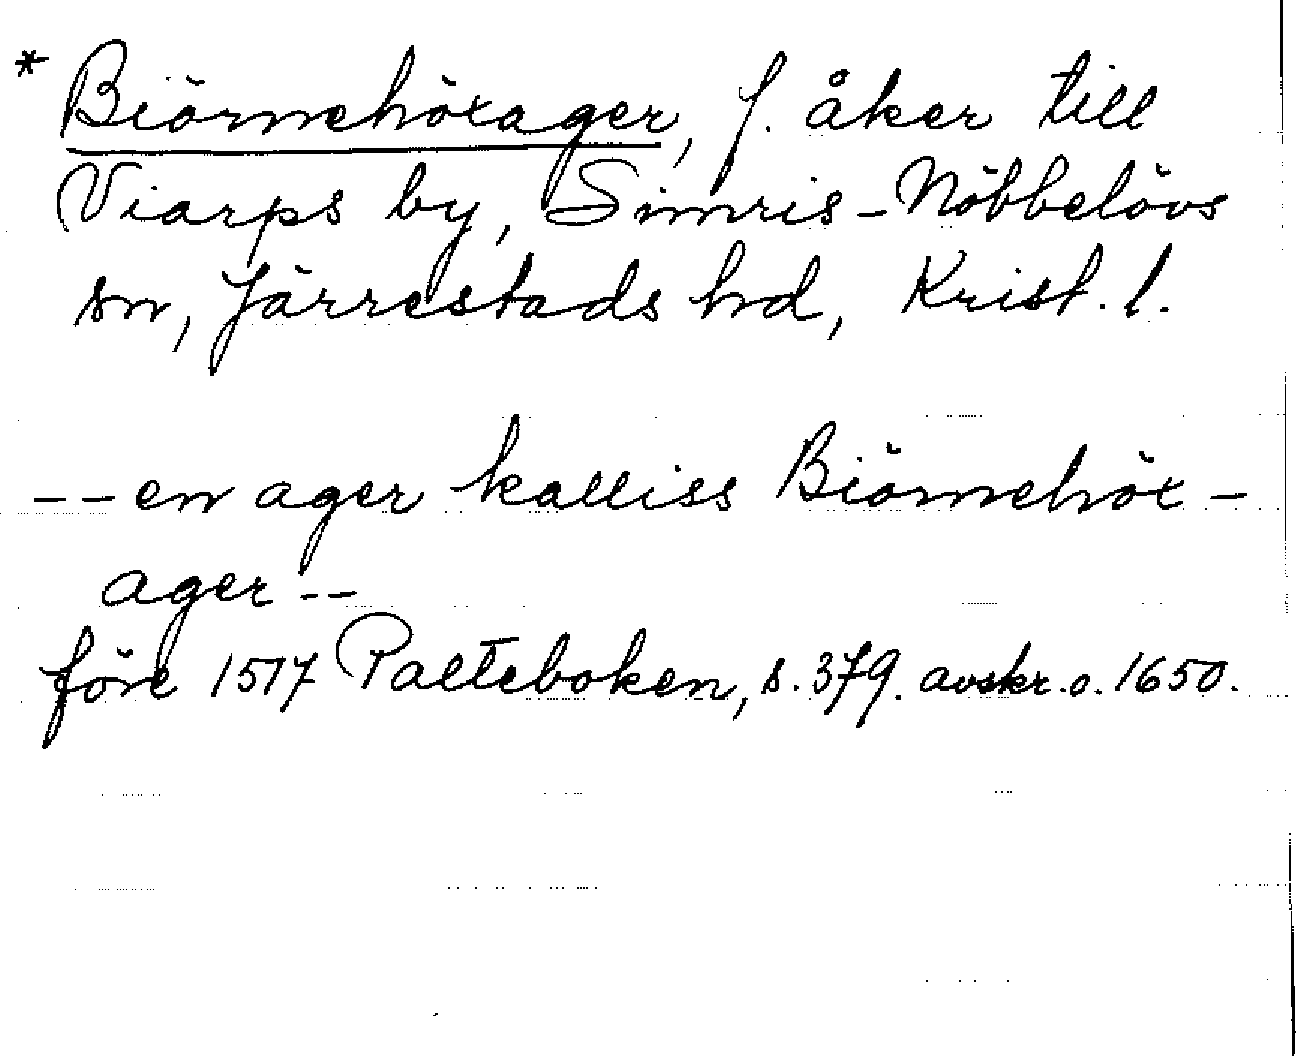 * Biörnehöxager, f. åker till
Viarps by, Simris-Nöbbelövs
sn, Järrestads hd, Krist. l.
-- en ager kalliss Biörnehöx-
ager --
före 1517 Palteboken, s. 379. avskr. o. 1650.